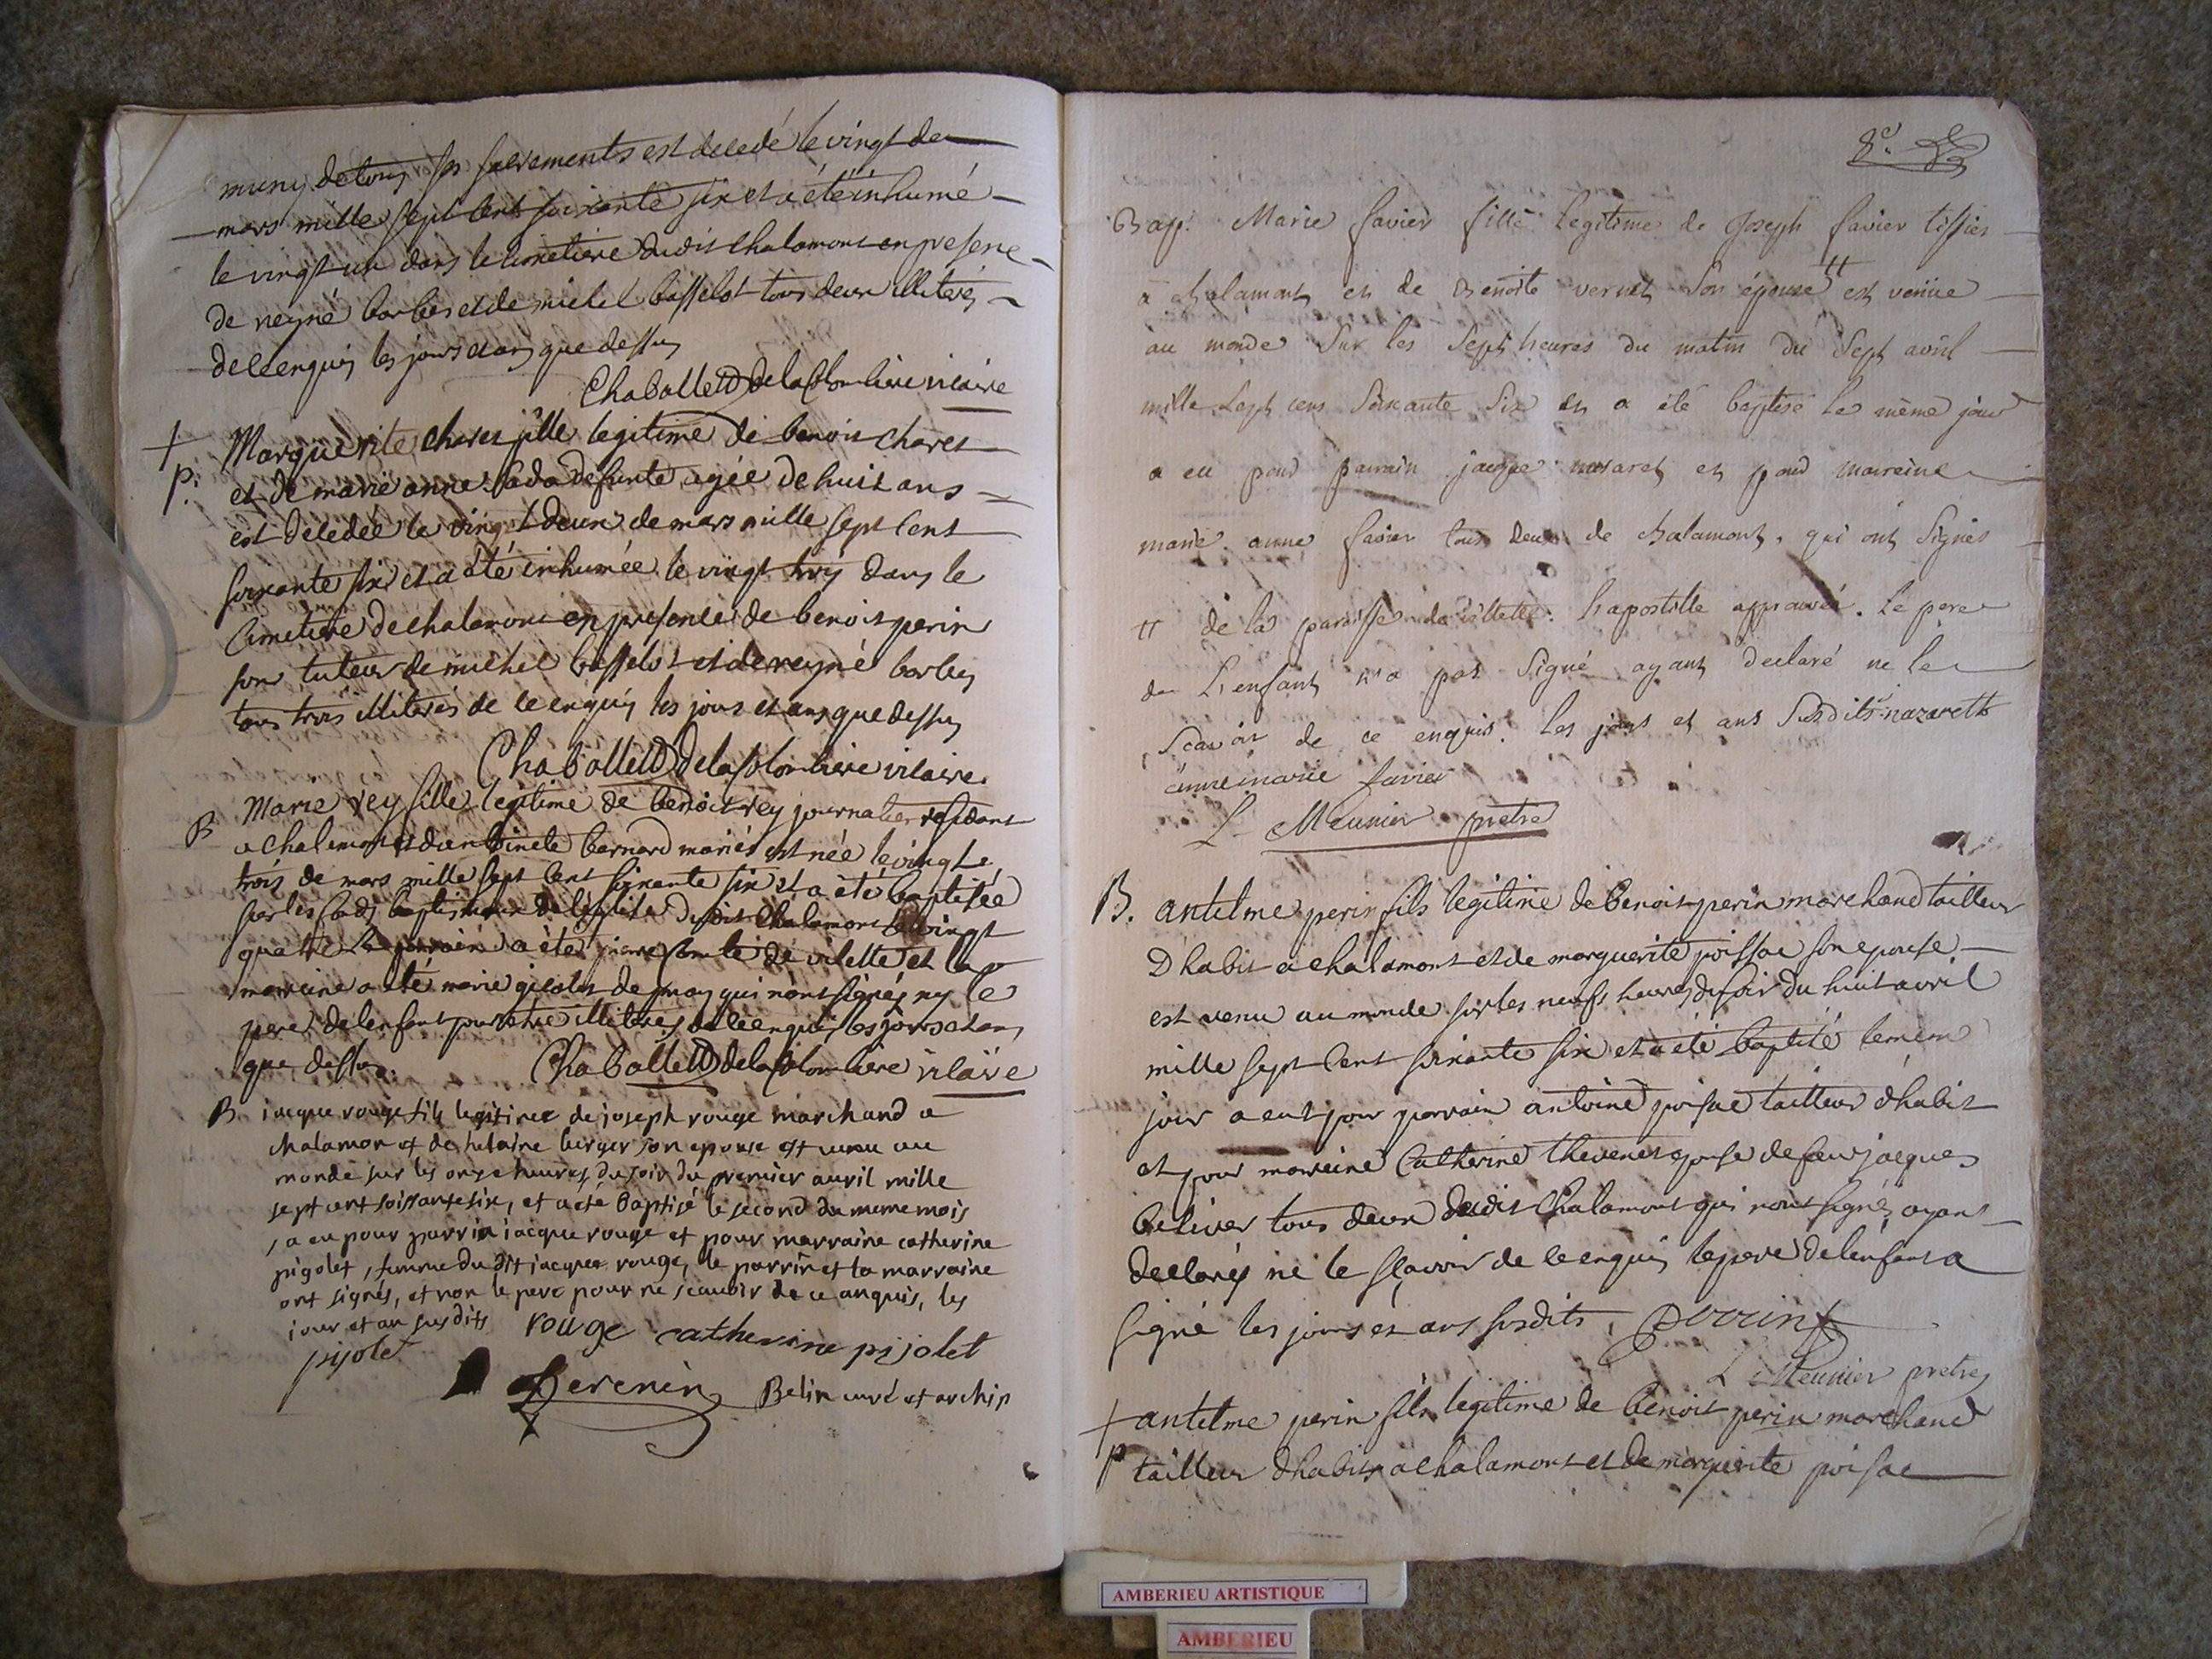 muny de tous ses sacrements est decedé le vingt de
mars mille sept cent soixante six et a été inhumé
le vingt un dans le cimetiere dudit chalamont en presence
de neyné barbes et de michel basselot tous deux illiterés
de ce enquis les jours et ans que dessus
Chabalett delacolombiere vicaire
+ Marguerite chares fille legitime de benoit chares
p. et de marie anne defunte agée de huit ans
est decedée le vingt deux de mars mille sept cent
soixante six et a été inhumée le vingt trois dans le
cimetiere de chalamont en presence de benoit perin
son tuteur de michel basselot et de neyné barbes
tous trois illiterés de ce enquis les jours et ans que dessus
Chabalett delacolombiere vicaire
Marie rey fille legitime de benoit rey journalier residant
B a chalamont et d'antoinete bernard mariés est née le vingt
trois de mars mille sept cent soixante six et a été baptisée
par les fonds baptismaux de l'eglise dudit chalamont le vingt
quatre le parrain a été pierre comte de vilette et la
mareine a été marie de qui n'ont signés ny le
pere de lenfant pour etre illiterés de ce enquis les jours et ans
que dessus. Chabalett delacolombiere vicaire
B. iacque rouge fils legitime de joseph rouge marchand a
chalamon et de helaine burger son epouse est venu au
monde sur les onze heures du soir du premier avril mille
sept cent soissante six, et a été baptisé le second du meme mois
, a eu pour parrin iacque rouge et pour marraine catherine
pigolet, femme du dit iacque rouge, le parrin et la marraine
ont signés, et non le pere pour ne scauoir de ce anquis, les
iour et an susdits rouge catherine pijolet
pijolet
Serenin Belin curé et archip
8e.
Bap. Marie favier fille legitime de Joseph favier tissier
a chalamont et de Benoite vernet son épouse # est venüe
au monde sur les sept heures du matin du sept avril
mille sept cens soixante six et a été baptisé le même jour
a eu pour parrain jacque nazaret et pour maireine
marie anne favier tous deux de chalamont, qui ont signés
# de la paroisse de villette. L'apostille approuvée. Le pere
de L'enfant n'a pas signé ayant declaré ne le
scavoir de ce enquis. Les jours et ans susdits nazareth
anne marie favier
L Meunier pretre
B. antelme perin fils legitime de Benoit perin marchand tailleur
Dhabit a chalamont et de marguerite poissac son epouse
est venu au monde sur les neufs heures du soir du huit avril
mille sept cent soixante six et a été baptisé le mem
jour a eut pour parrain antoine poisac tailleur dhabit
et pour mareine Catherine thevenet epouse de feu jacques
beliver tous deux dudit chalamont qui n'ont signés ayant
declarés ne le sçavoir de ce enquis le pere de lenfant a
signé les jours et ans susdits. perrin
L Meunier pretre
+ antelme perin fils legitime de benoit perin marchand
p tailleur dhabit a chalamont et de marguerite poisac
AMBERIEU ARTISTIQUE
AMBERIEU